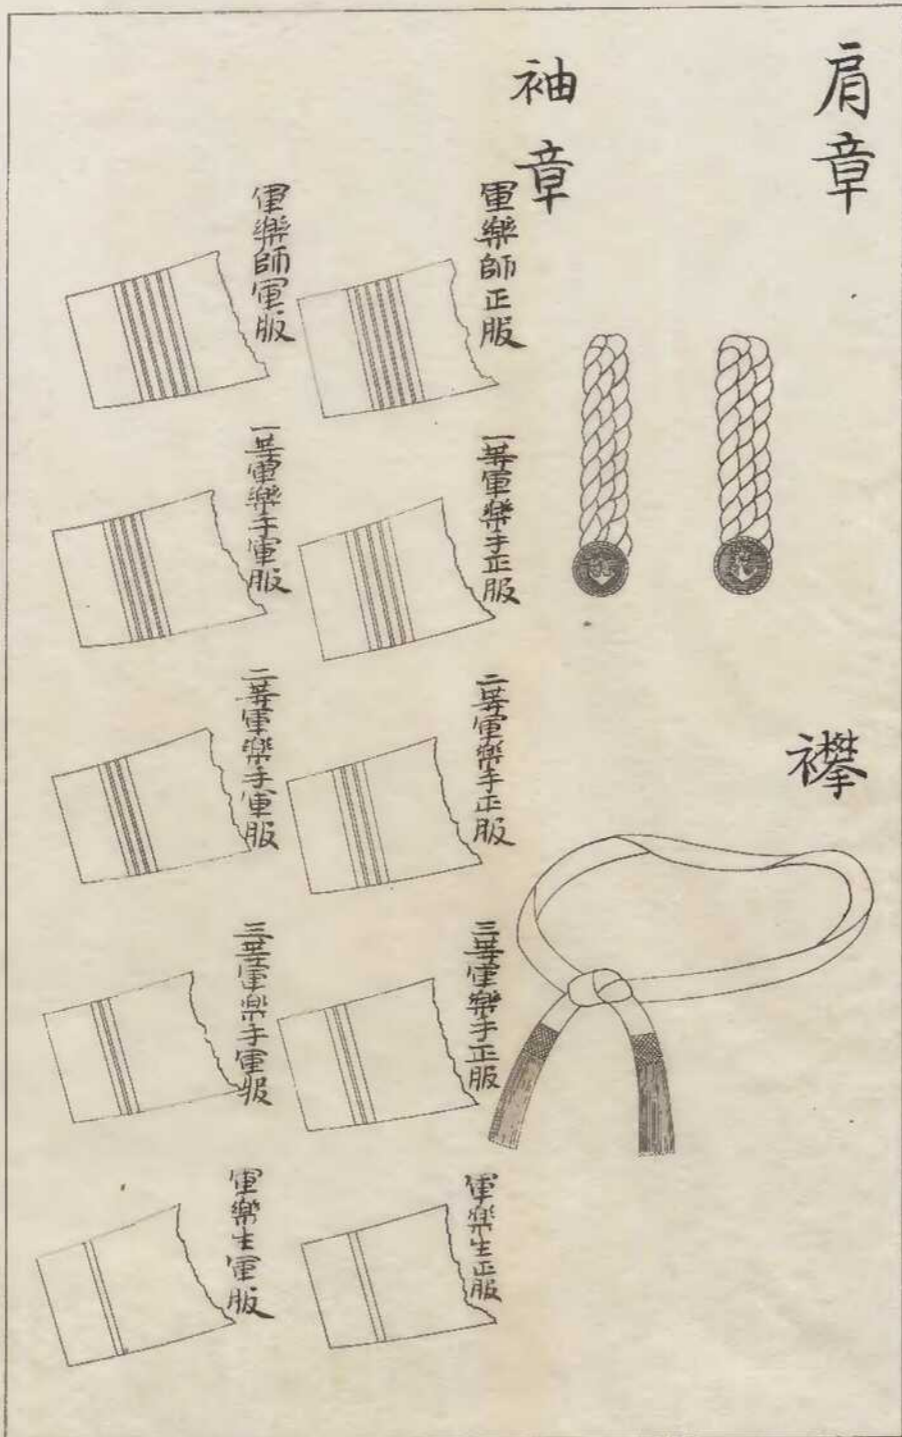 肩章
襷
袖章
軍樂師正服
一等軍樂手正服
二等軍樂手正服
三等軍樂手正服
軍樂生正服
軍樂師軍服
一等軍樂手軍服
二等軍樂手軍服
三等軍樂手軍服
軍樂生軍服